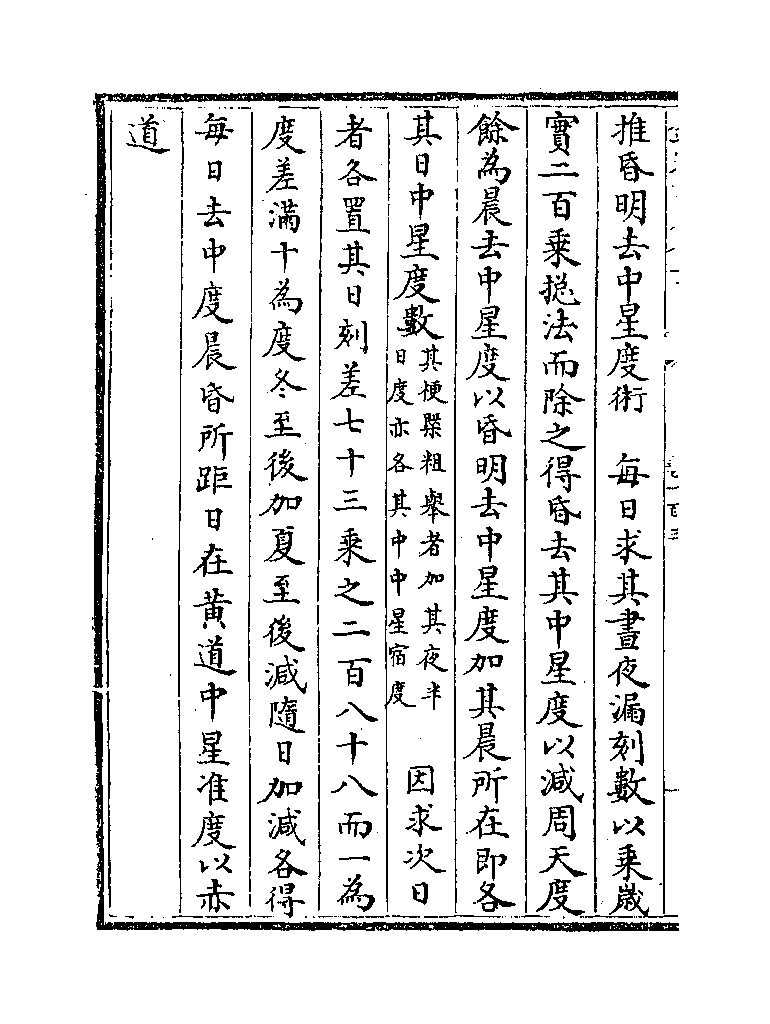 推昏明去中星度術　每日求其晝夜漏刻數以乘歲
實二百乘摠法而除之得昏去其中星度以減周天度
餘為晨去中星度以昏明去中星度加其晨所在即各
其日中星度數其梗槩粗舉者加其夜半日度亦各其中中星宿度　因求次日
者各置其日刻差七十三乘之二百八十八而一為
度差滿十為度冬至後加夏至後減隨日加減各得
每日去中度晨昏所距日在黃道中星准度以赤
道